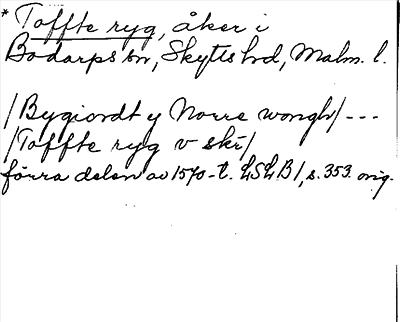 * Toffte ryg, åker i
Bodarps sn, Skytts hrd, Malm. l.
/Bygiordt y Norre wongh/ ---
/Toffte ryg v skr/
förra delen av 1570-t. LSLB1, s. 353. orig.